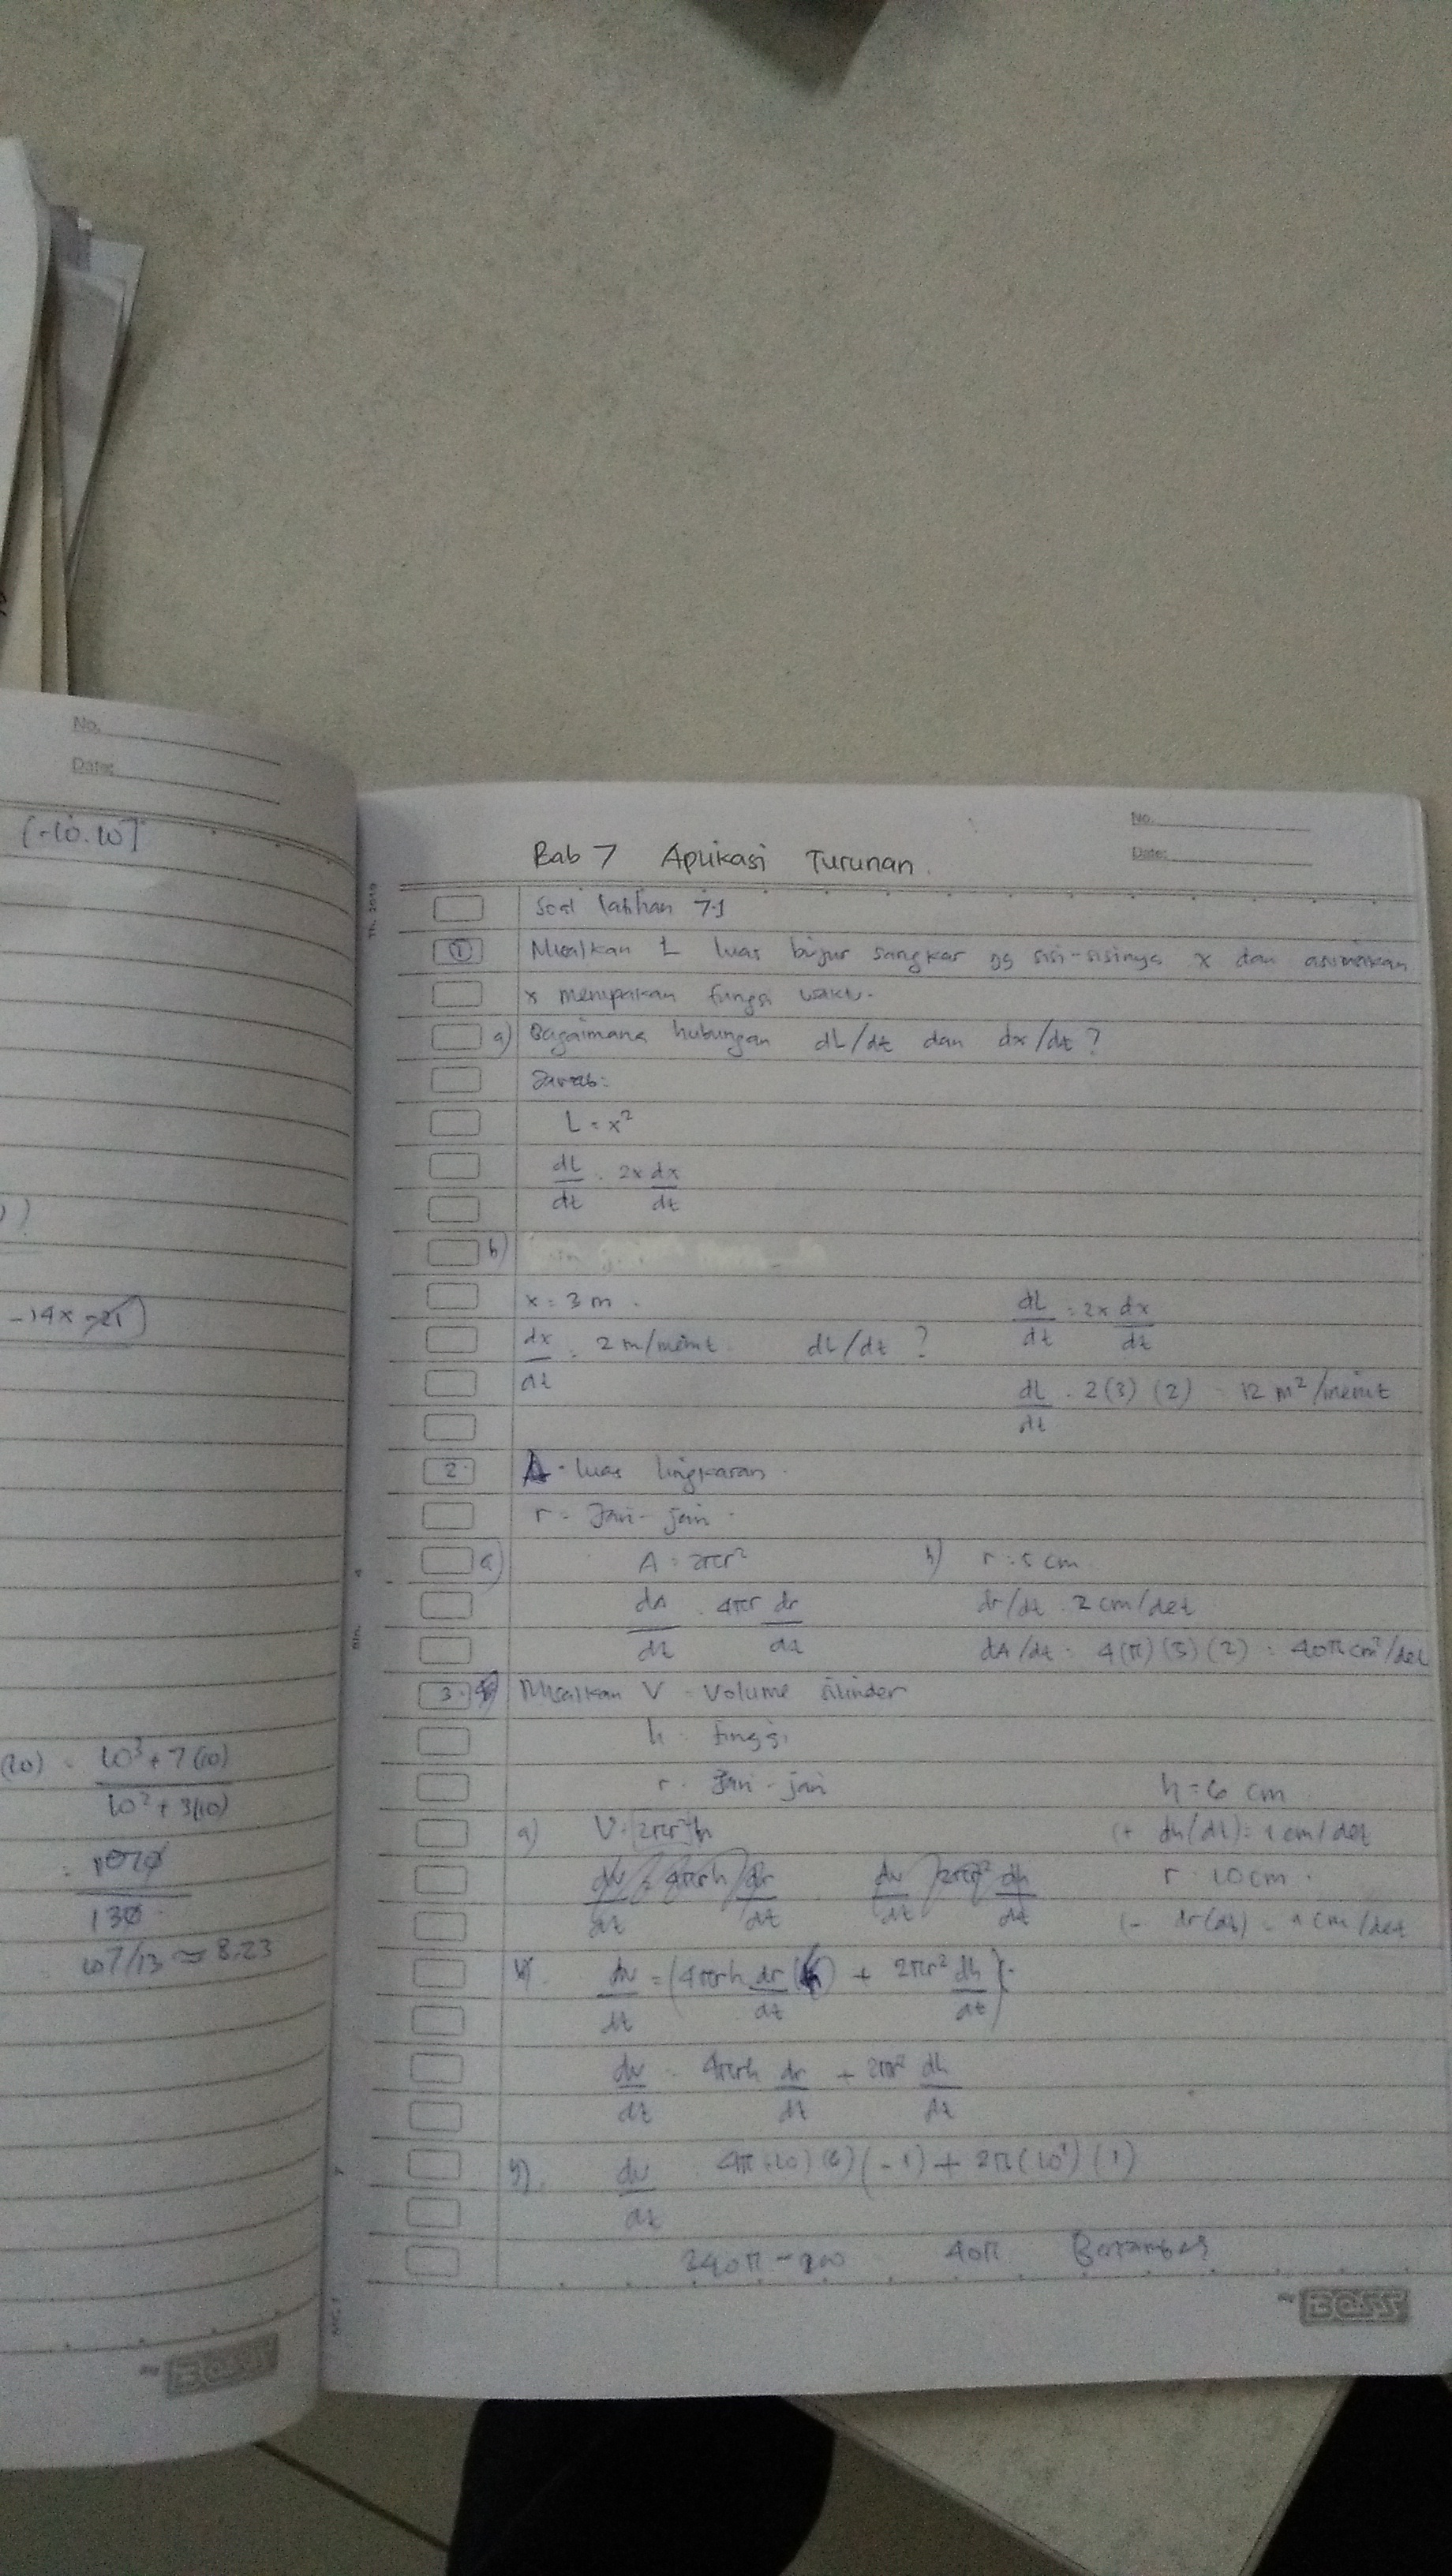 No.
Date:
[-10.10]
-14x-21)
(10) = 10³ + 7(10)
10² + 3(10)
= 1070
130
107/13 ≈ 8.23
Boss
No.
Date:
Bab 7 Aplikasi Turunan.
Soal latihan 7.1
① Misalkan L luas bujur sangkar yg sisi-sisinya x dan asumsikan
x merupakan fungsi waktu.
a) Bagaimana hubungan dL/dt dan dx/dt?
Jawab:
L = x²
dL/dt = 2x dx/dt
b)
x = 3 m. dL/dt = 2x dx/dt
dx/dt = 2 m/menit dL/dt ?
dL/dt = 2(3)(2) = 12 m²/menit
2. A = luas lingkaran.
r = Jari-jari.
a) A = 2πr² b) r = 5 cm
dA/dt = 4πr dr/dt dr/dt = 2 cm/det
dA/dt = 4(π)(5)(2) = 40π cm²/det
3. Misalkan V = Volume silinder
h = tinggi
r = Jari-jari h = 6 cm
a) V = (2πr²)h (+ dh(dt) = 1 cm/det
dv/dt = 4πrh dr/dt dv/dt 2πr² dh/dt r = 10 cm.
(- dr(dt) = 1 cm/det
dv/dt = (4πrh dr/dt + 2πr² dh/dt).
dv/dt = 4πrh dr/dt + 2πr² dh/dt
b). dv/dt = 4π(10)(6)(-1) + 2π(10²)(1)
240π - 200 40π
Boss